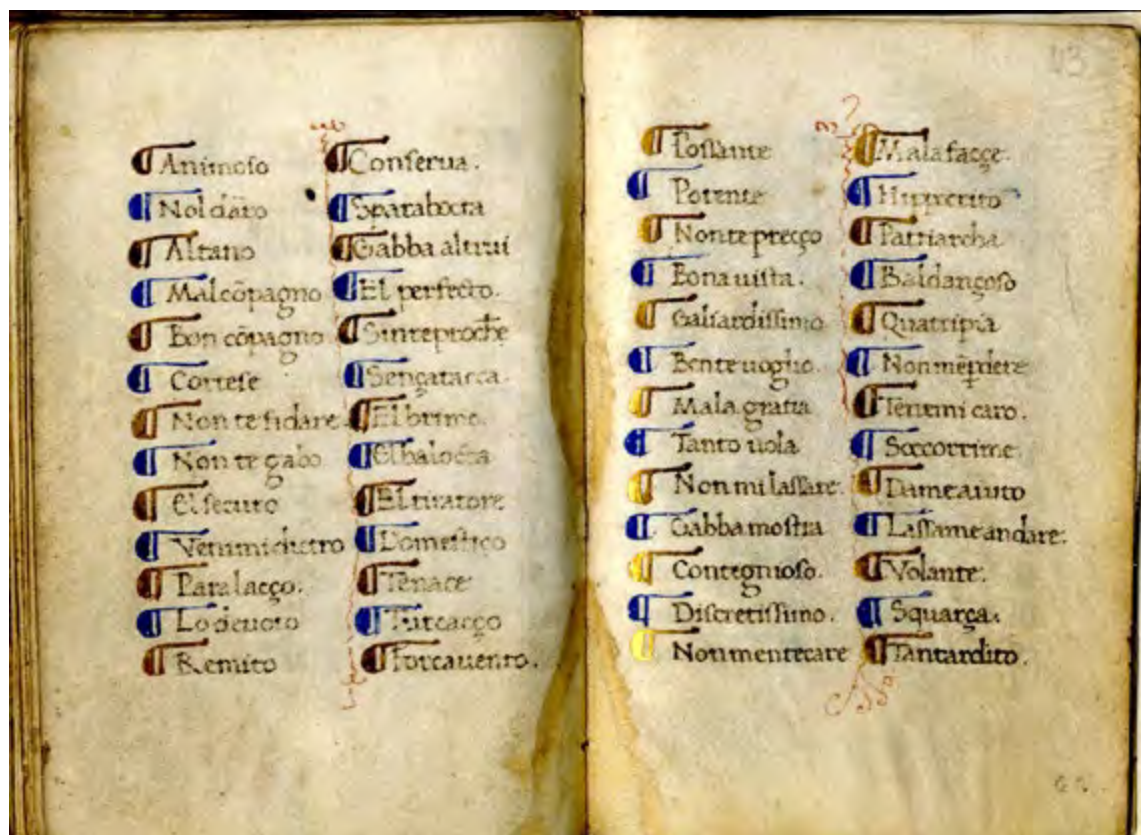 Animoso
Nol daro
Altano
Mal cōpagno
Bon cōpagno
Cortese
Non te fidare
Non te gabo
El securo
Venimi dietro
Para lacço.
Lo deuoto
Remito
Conserua.
Gabba altrui
El perfecto.
Sençatacca.
El brimo.
El tiratore
Domestico
Tenace
Turcacço
Forcauento.
43
Possante
Potente
Non te preçço
Bona uista.
Galiardissimo
Ben te uoglio.
Mala gratia
Tanto uola
Non mi lassare.
Gabba mostra
Contegnioso.
Discretissimo.
Non mentecare
Mala facçe.
Patriarcha
Baldançoso
Tenemi caro.
Soccorrime.
Dame aiuto
Lassame andare.
Volante.
Squarça.
Tantardito.